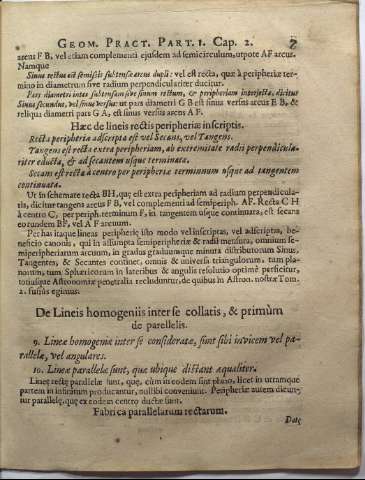 GEOM. PRACT. PART. I. Cap. 2. 7
arcus F B, vel etiam complementi ejusdem ad semicirculum, utpote A F arcus.
Namque
Sinus rectus est semissis subtensæ arcus dupli: vel est recta, quæ à peripheriæ ter-
mino in diametrum sive radium perpendiculariter ducitur.
Pars diametri inter subtensum sive sinum rectum, & peripheriam interjecta, dicitur
Sinus secundus, vel sinus versus: ut pars diametri G B est sinus versus arcus E B, &
reliqua diametri pars G A, est sinus versus arcus A F.
Hæc de lineis rectis peripheriæ inscriptis.
Recta peripheriæ adscripta est vel Secans, vel Tangens.
Tangens est recta extra peripheriam, ab extremitate radii perpendicula-
riter educta, & ad secantem usque terminata.
Secans est recta à centro per peripheriæ terminum usque ad tangentem
continuata.
Ut in schemate recta BH, quę est extra peripheriam ad radium perpendicula-
ris, dicitur tangens arcus F B, vel complementi ad semiperiph. AF. Recta C H
à centro C, per periph. terminum F, in tangentem usque continuata, est secans
eorundem BF, vel A F arcuum.
Per has itaque lineas peripherię isto modo vel inscriptas, vel adscriptas, be-
neficio canonis, qui in assumpta semiperipheriæ & radii mensura, omnium se-
miperipheriarum arcuum, in gradus graduumque minuta distributorum Sinus,
Tangentes, & Secantes continet, omnis & universa triangulorum, tum pla-
norum, tum Sphæricorum in lateribus & angulis resolutio optimè perficitur,
totiusque Astronomiæ penetralia recluduntur, de quibus in Astron. nostræ Tom.
2. fusius egimus.
De Lineis homogeniis inter se collatis, & primùm
de parellelis.
9. Lineæ homogeniæ inter se consideratæ, sunt sibi invicem vel pa-
rallelæ, vel angulares.
10. Lineæ parallelæ sunt, quæ ubique distant æqualiter.
Lineę rectę parallelæ sunt, quę, cùm in eodem sint plano, licet in utramque
partem in infinitum producantur, nullibi conveniunt. Peripheriæ autem dicun-
tur parallelę, quę ex eodem centro ductæ sunt.
Fabrica parallelarum rectarum.
Datę